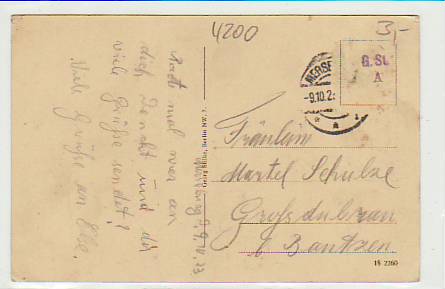 4200
3,-
MERSE
-9.10.2
G. St.
A
Fräulein
Martel Schulze
Großdubrau
b. Bautzen
18 2260
Georg Stilke, Berlin NW. 7.
9.10.23
Ratet mal wer an
dich denkt und dir
viele Grüße sendet?
Viele Grüße an Else